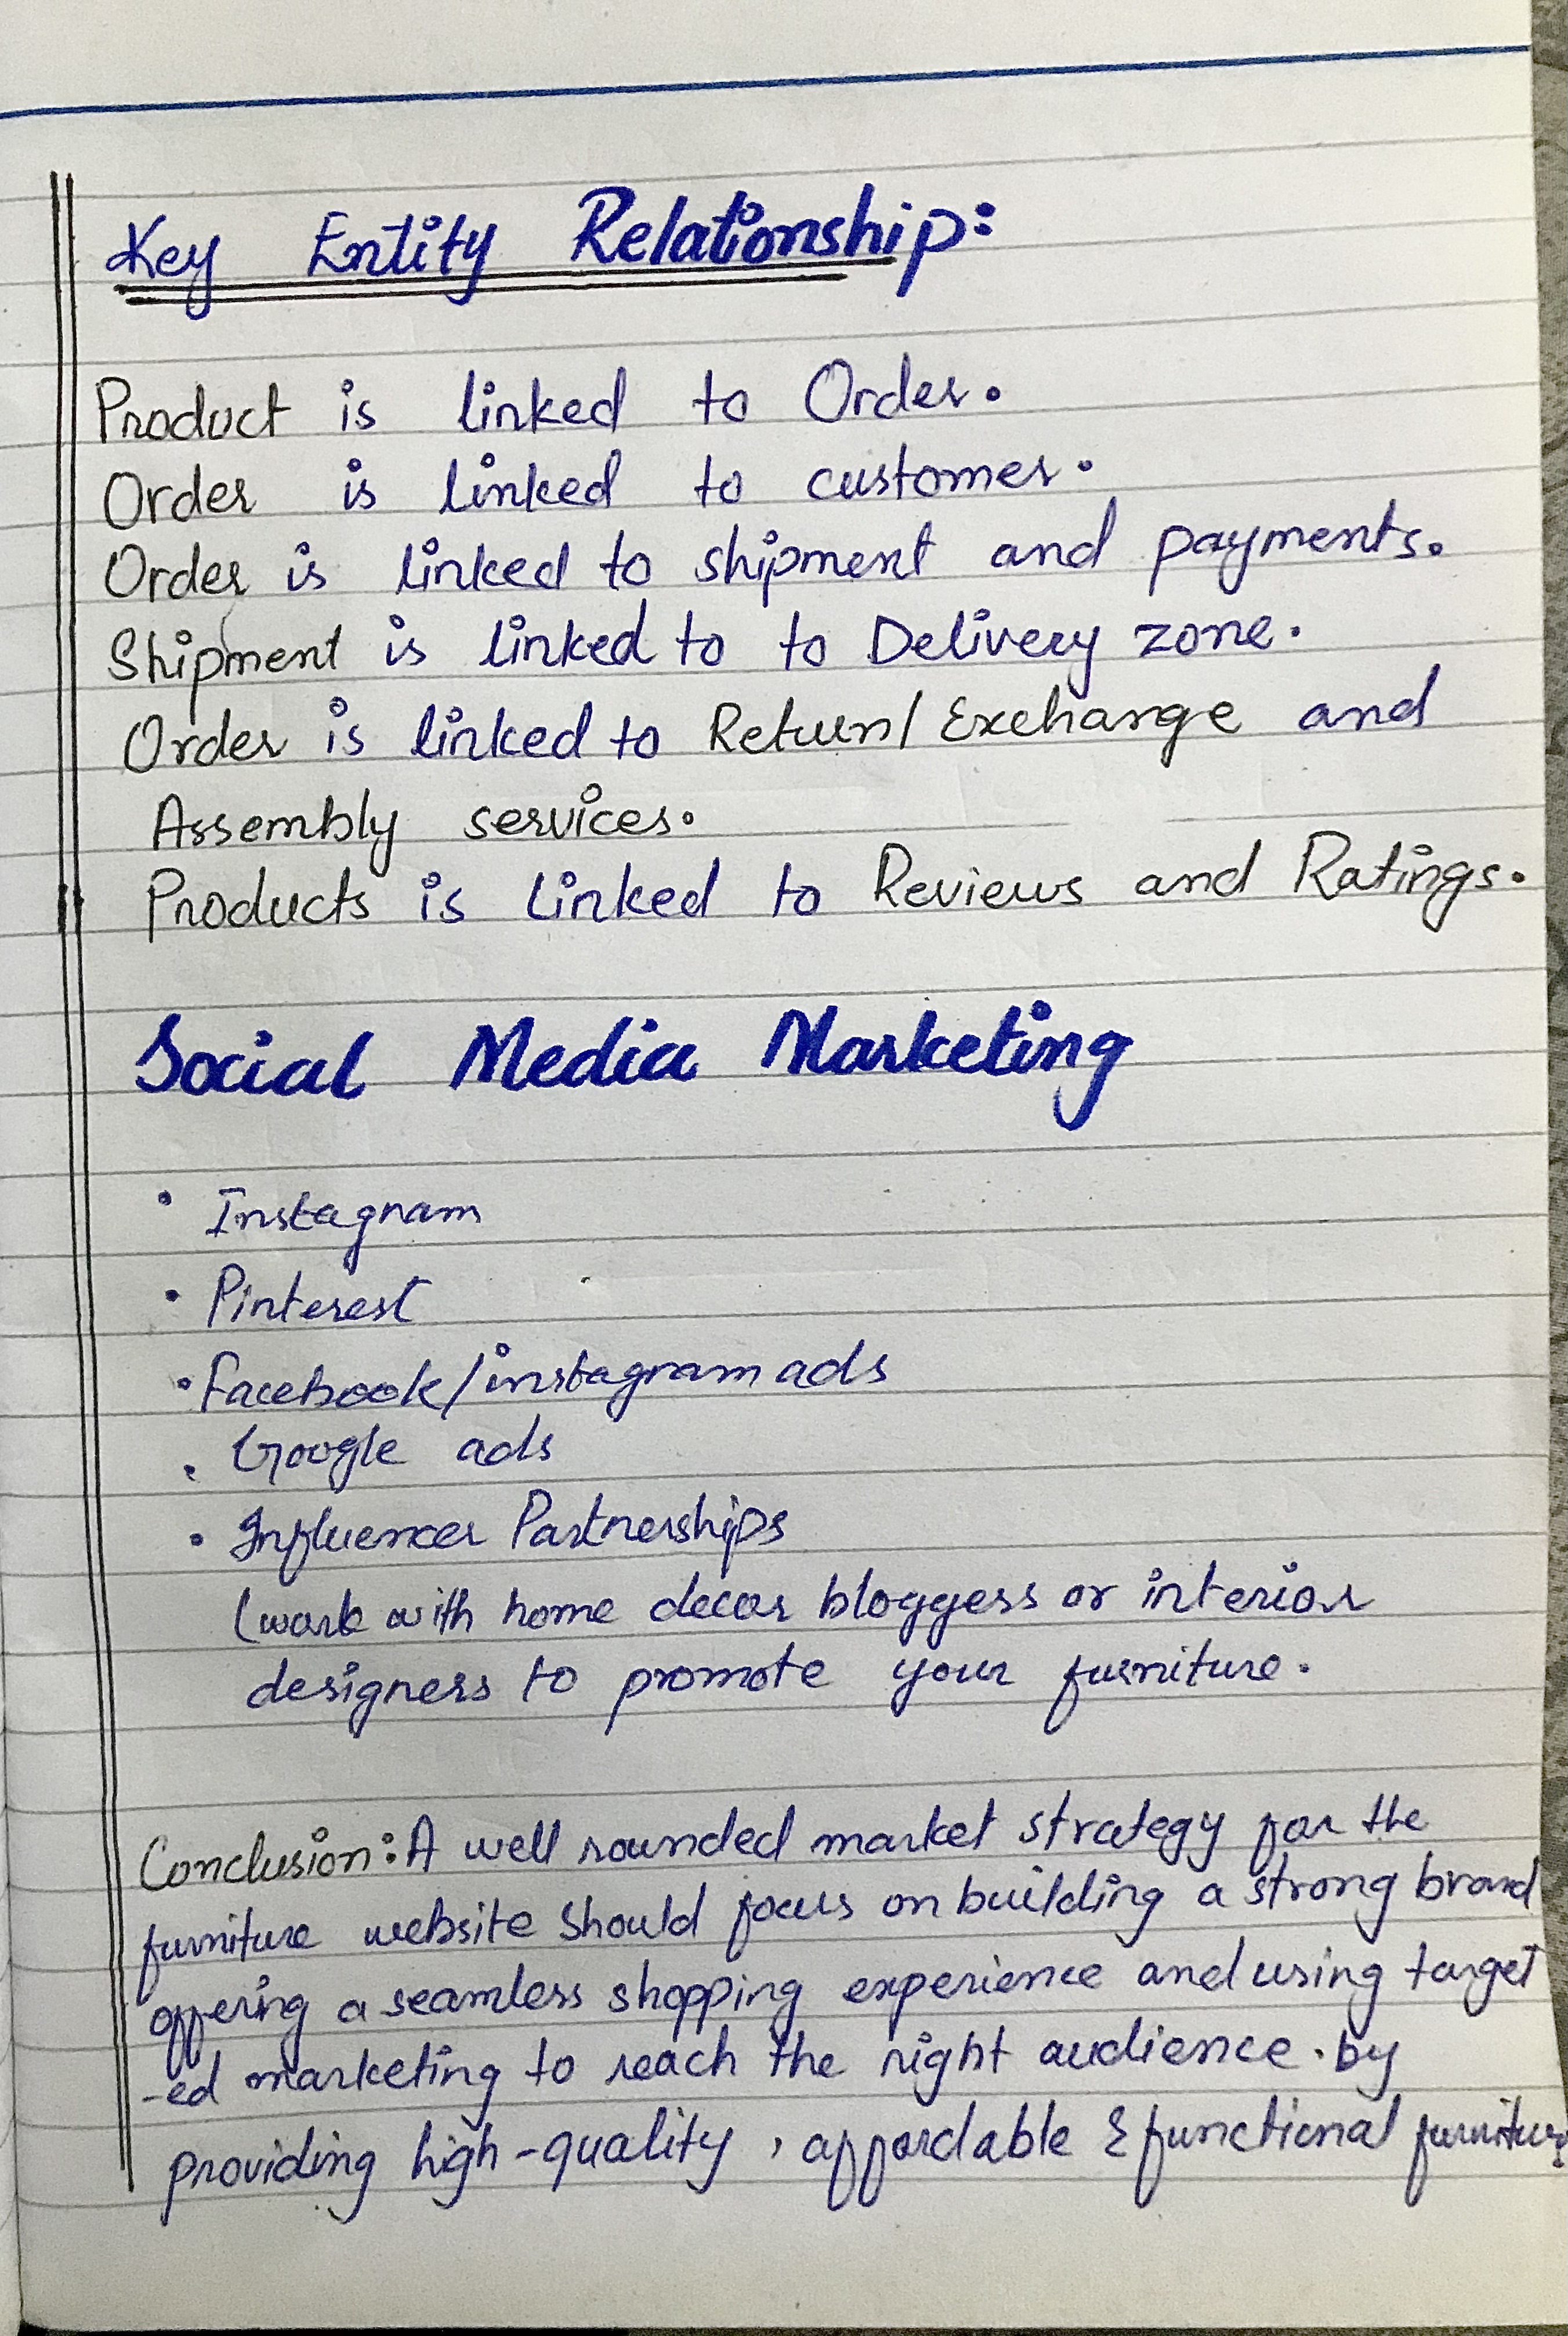 Key Entity Relationship:
Product is linked to Order.
Order is linked to customer.
Order is linked to shipment and payments.
Shipment is linked to to Delivery zone.
Order is linked to Return/Exchange and
Assembly services.
Products is linked to Reviews and Ratings.
Social Media Marketing
• Instagram
• Pinterest
• Facebook/instagram ads
. Google ads
• Influencer Partnerships
(work with home decor bloggess or interior
designers to promote your furniture.
Conclusion: A well rounded market strategy for the
furniture website should focus on building a strong brand
offering a seamless shopping experience and using target
-ed marketing to reach the right audience. by
providing high-quality, affordable & functional furniture.